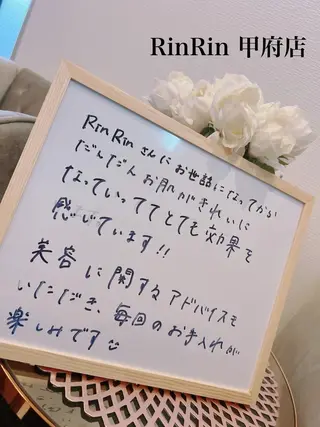 RinRin 甲府店
RinRinさんにお世話になってから
だんだんお肌がきれいに
なっていっててとても効果を
感じています!!
美容に関するアドバイスも
いただき、毎回のお手入れが
楽しみです☺